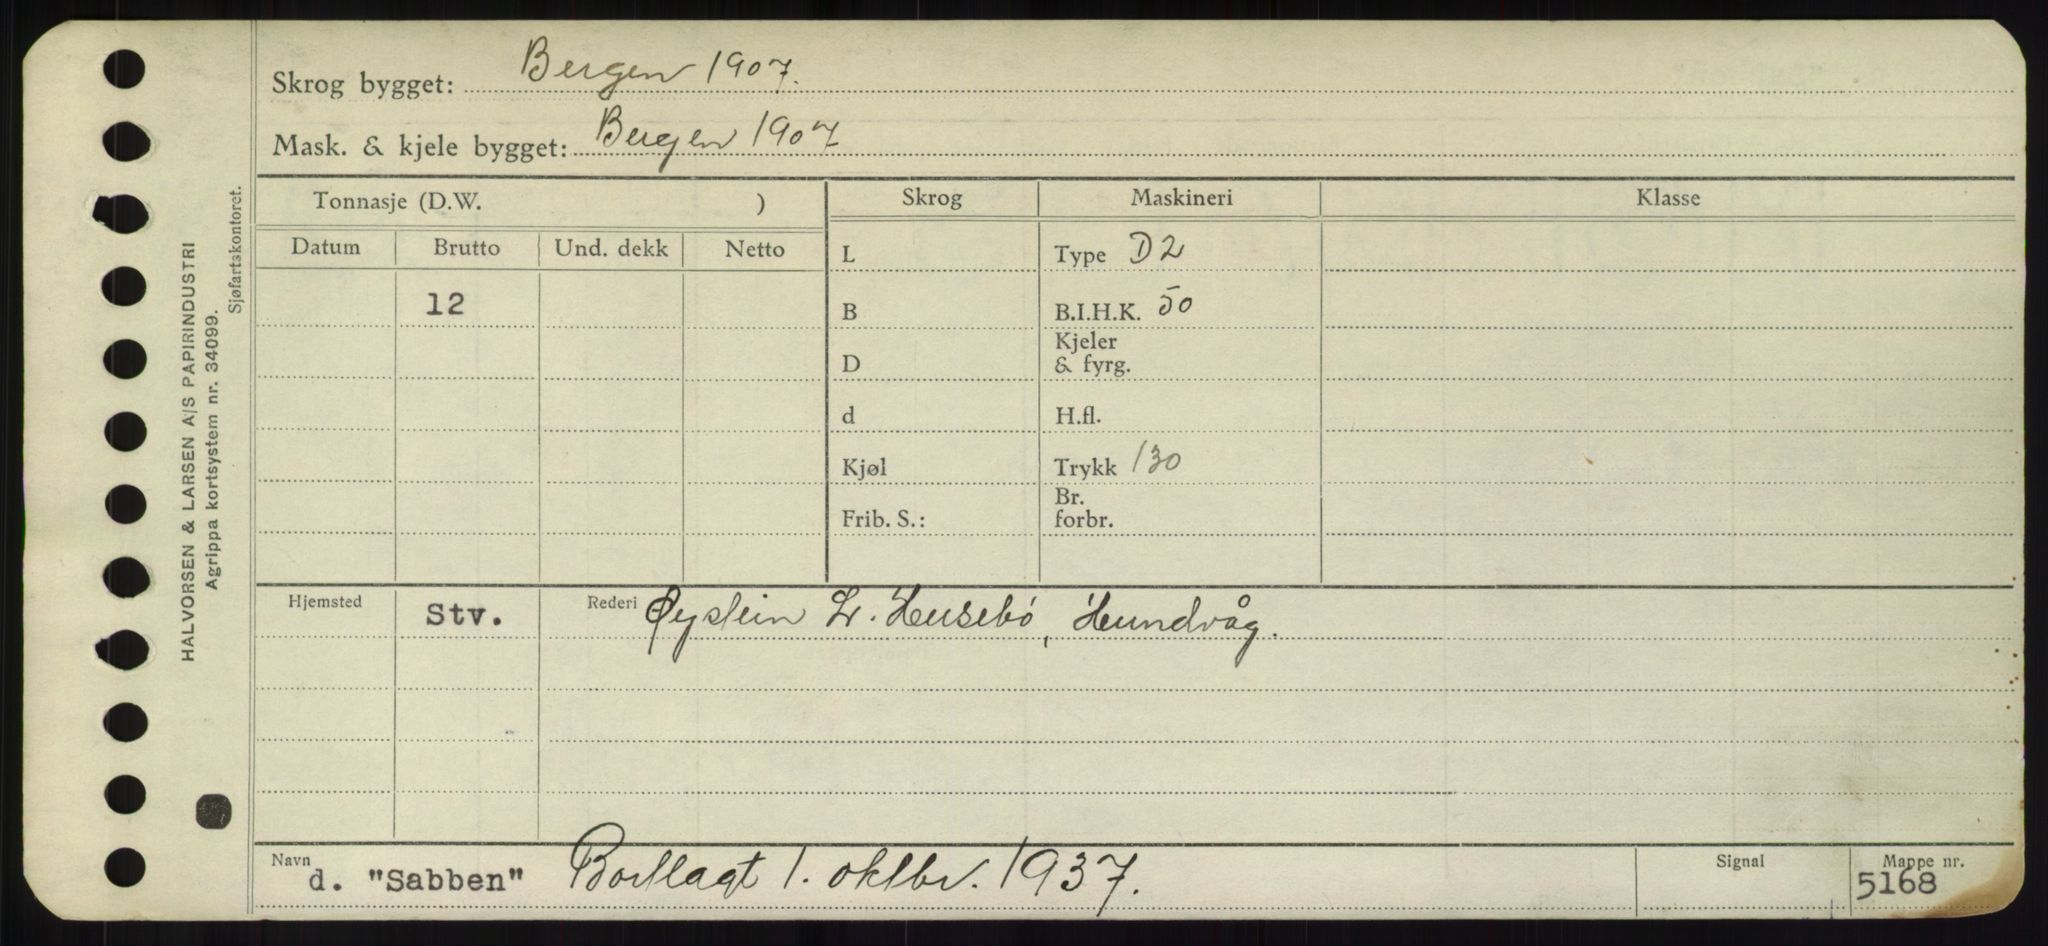 HALVORSEN & LARSEN A/S PAPIRINDUSTRI
Agrippa kortsystem nr. 34099.
Sjøfartskontoret.
Skrog bygget: Bergen 1907.
Mask. & kjele bygget: Bergen 1907
Tonnasje (D.W. ) Skrog Maskineri Klasse
Datum Brutto Und. dekk Netto L Type D2
12 B B.I.H.K. 50
D Kjeler & fyrg.
d H.fl.
Kjøl Trykk 130
Frib. S.: Br. forbr.
Hjemsted Stv. Rederi Øystein L. Husebø, Hundvåg.
Navn d. "Sabben" Bortlagt 1. oktbr. 1937. Signal Mappe nr. 5168